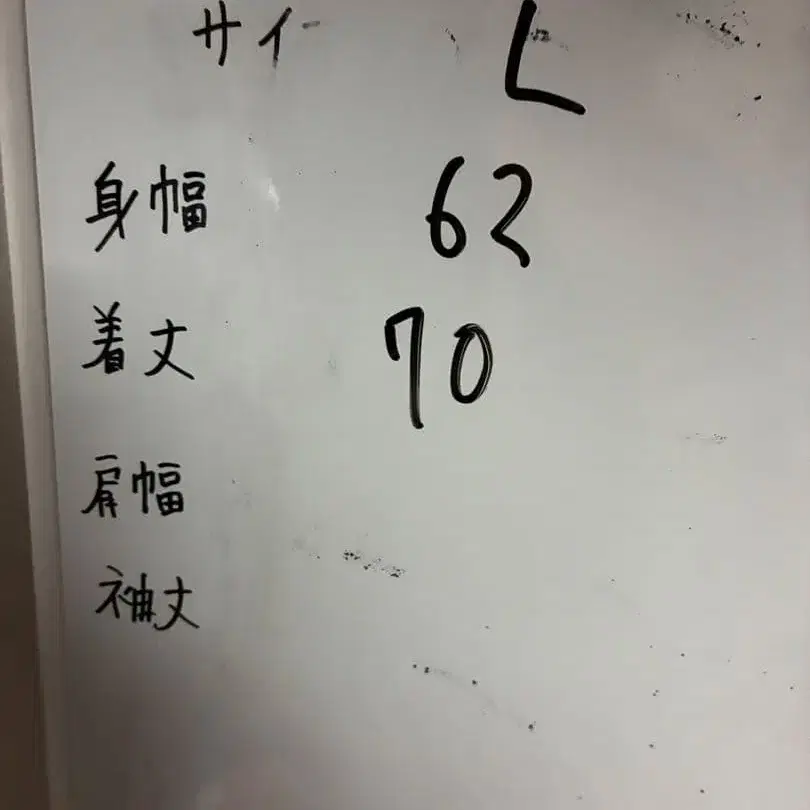 サイ L
身幅 62
着丈 70
肩幅
袖丈